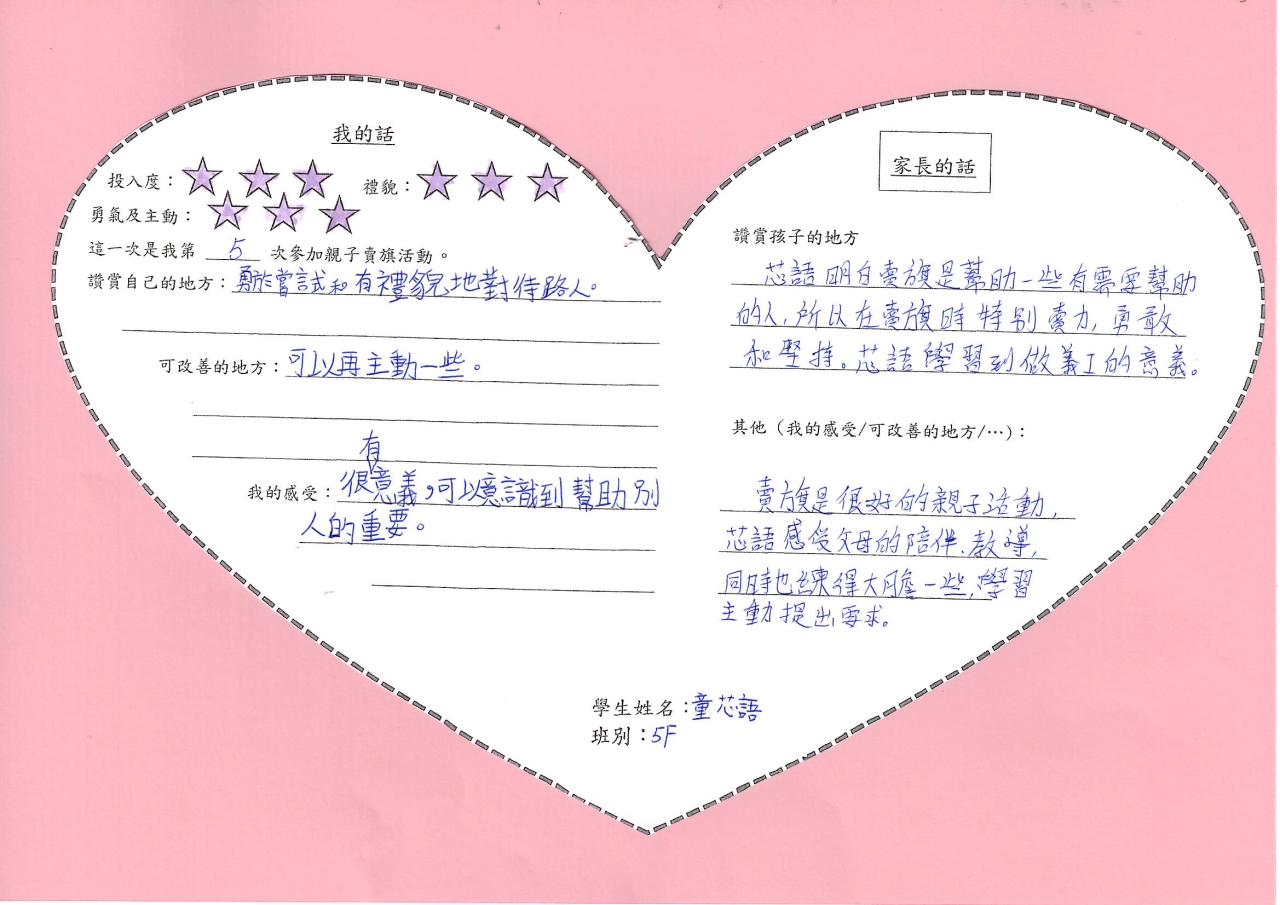 我的話
投入度：☆ ☆ ☆ 禮貌：☆ ☆ ☆
勇氣及主動：☆ ☆ ☆
這一次是我第 5 次參加親子賣旗活動。
讚賞自己的地方：勇於嘗試和有禮貌地對待路人。
可改善的地方：可以再主動一些。
我的感受：很有意義，可以意識到幫助別
人的重要。
家長的話
讚賞孩子的地方
芯語明白賣旗是幫助一些有需要幫助
的人，所以在賣旗時特別賣力，勇敢
和堅持。芯語學習到做義工的意義。
其他（我的感受/可改善的地方/…）：
賣旗是很好的親子活動，
芯語感受父母的陪伴、教導，
同時也練得大膽一些，學習
主動提出要求。
學生姓名：童芯語
班別：5F